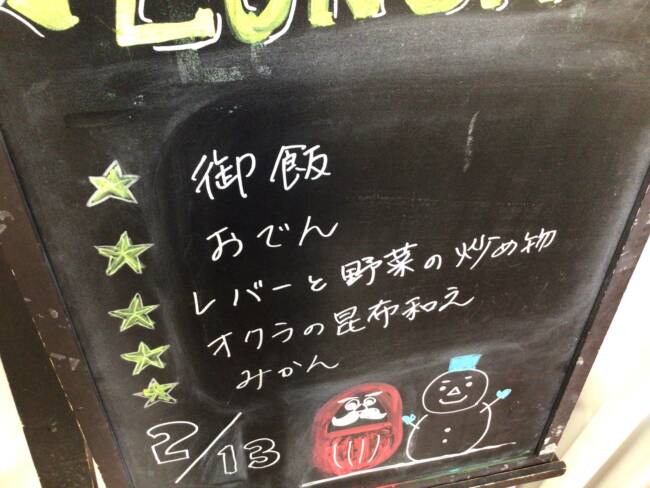 LUNCH
御飯
おでん
レバーと野菜の炒め物
オクラの昆布和え
みかん
2/13